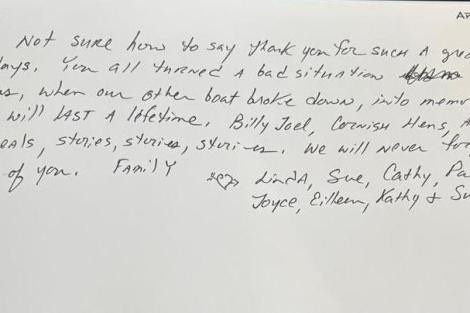 AP
Not sure how to say thank you for such a grea
days. You all turned a bad situation
us, when our other boat broke down, into memor
will LAST A lifetime. Billy Joel, Cornish Hens, A
eals, stories, stories, stories. We will never for
of you. Family
Linda, Sue, Cathy, Pa
Joyce, Eilleen, Kathy + Su